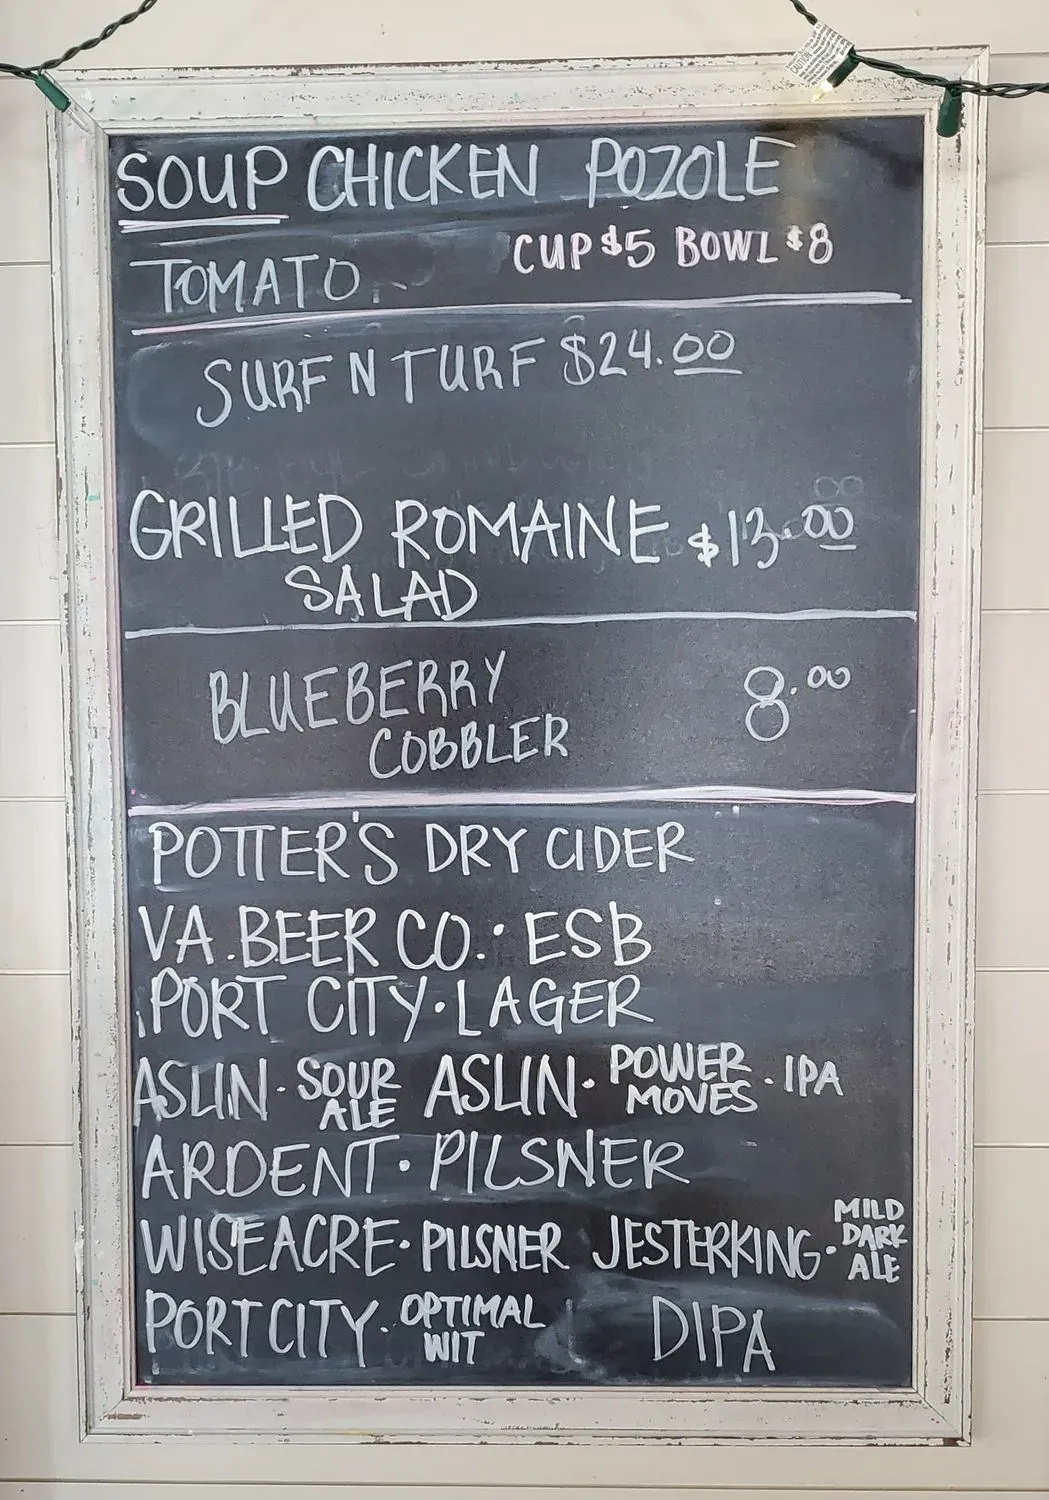 SOUP CHICKEN POZOLE
CUP $5 BOWL $8
TOMATO
SURF N TURF $24.00
GRILLED ROMAINE $13.00
SALAD
BLUEBERRY 8.00
COBBLER
POTTER'S DRY CIDER
VA. BEER CO. · ESB
PORT CITY · LAGER
ASLIN · SOUR ALE ASLIN · POWER MOVES · IPA
ARDENT · PILSNER
WISEACRE · PILSNER JESTERKING · MILD DARK ALE
PORT CITY · OPTIMAL WIT DIPA
CAUTION